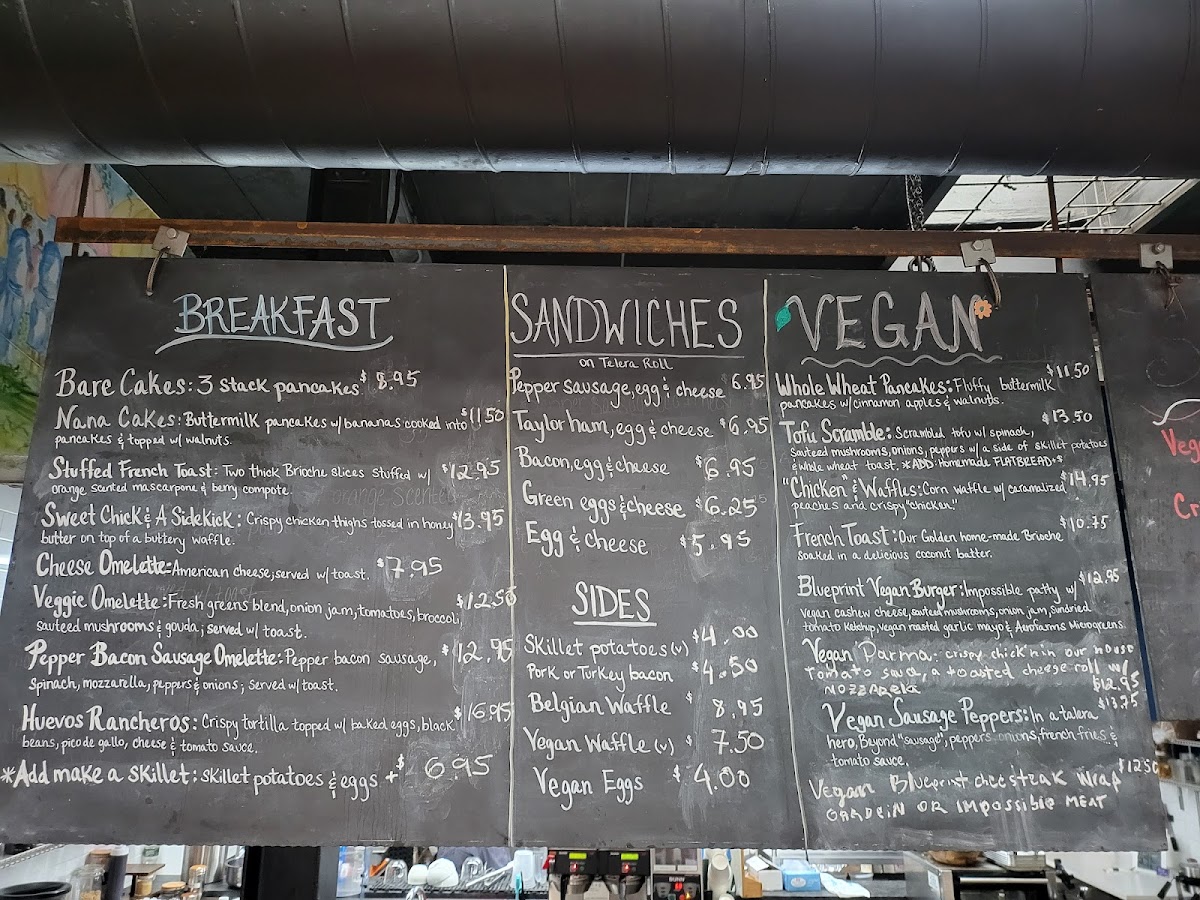 BREAKFAST
Bare Cakes: 3 stack pancakes $8.95
Nana Cakes: Buttermilk pancakes w/bananas cooked into $11.50
pancakes & topped w/ walnuts.
Stuffed French Toast: Two thick Brioche slices stuffed w/ $12.95
orange scented mascarpone & berry compote.
Sweet Chick & A Sidekick: Crispy chicken thighs tossed in honey $13.95
butter on top of a buttery waffle.
Cheese Omelette: American cheese; served w/ toast. $7.95
Veggie Omelette: Fresh greens blend, onion jam, tomatoes, broccoli, $12.50
sauteed mushrooms & gouda; served w/ toast.
Pepper Bacon Sausage Omelette: Pepper bacon sausage, $12.95
Spinach, mozzarella, peppers & onions; served w/ toast.
Huevos Rancheros: Crispy tortilla topped w/ baked eggs, black $16.95
beans, pico de gallo, cheese & tomato sauce.
*Add make a skillet: skillet potatoes & eggs + $6.95
SANDWICHES
on Telera Roll
Pepper sausage, egg & cheese 6.95
Taylor ham, egg & cheese $6.95
Bacon, egg & cheese $6.95
Green eggs & cheese $6.25
Egg & cheese $5.95
SIDES
Skillet potatoes (v) $4.00
Pork or Turkey bacon $4.50
Belgian Waffle $8.95
Vegan Waffle (v) $7.50
Vegan Eggs $4.00
VEGAN
Whole Wheat Pancakes: Fluffy buttermilk $11.50
pancakes w/cinnamon apples & walnuts.
Tofu Scramble: Scrambled tofu w/ spinach, $13.50
Sauteed mushrooms, onions, peppers w/ a side of skillet potatoes
& whole wheat toast. *ADD: Homemade FLATBREAD+$
"Chicken" & Waffles: Corn waffle w/ caramalized $14.95
peaches and crispy "chicken."
French Toast: Our Golden home-made Brioche $10.75
soaked in a delicious coconut batter.
Blueprint Vegan Burger: Impossible patty w/ $12.95
vegan cashew cheese, sauteed mushrooms, onion jam, Sundried
tomato Ketchup, vegan roasted garlic mayo & Aerofarms Microgreens.
Vegan Parma: crispy chick'n in our house
Tomato sauce, a toasted cheese roll w/
MOZZARELLA $12.95
Vegan Sausage Peppers: In a talera $13.75
hero, Beyond "sausage", peppers, onions, french fries &
tomato sauce.
Vegan Blueprint cheesteak Wrap $12.50
GARDEIN OR IMPOSSIBLE MEAT
Veg
Cr
BUNN